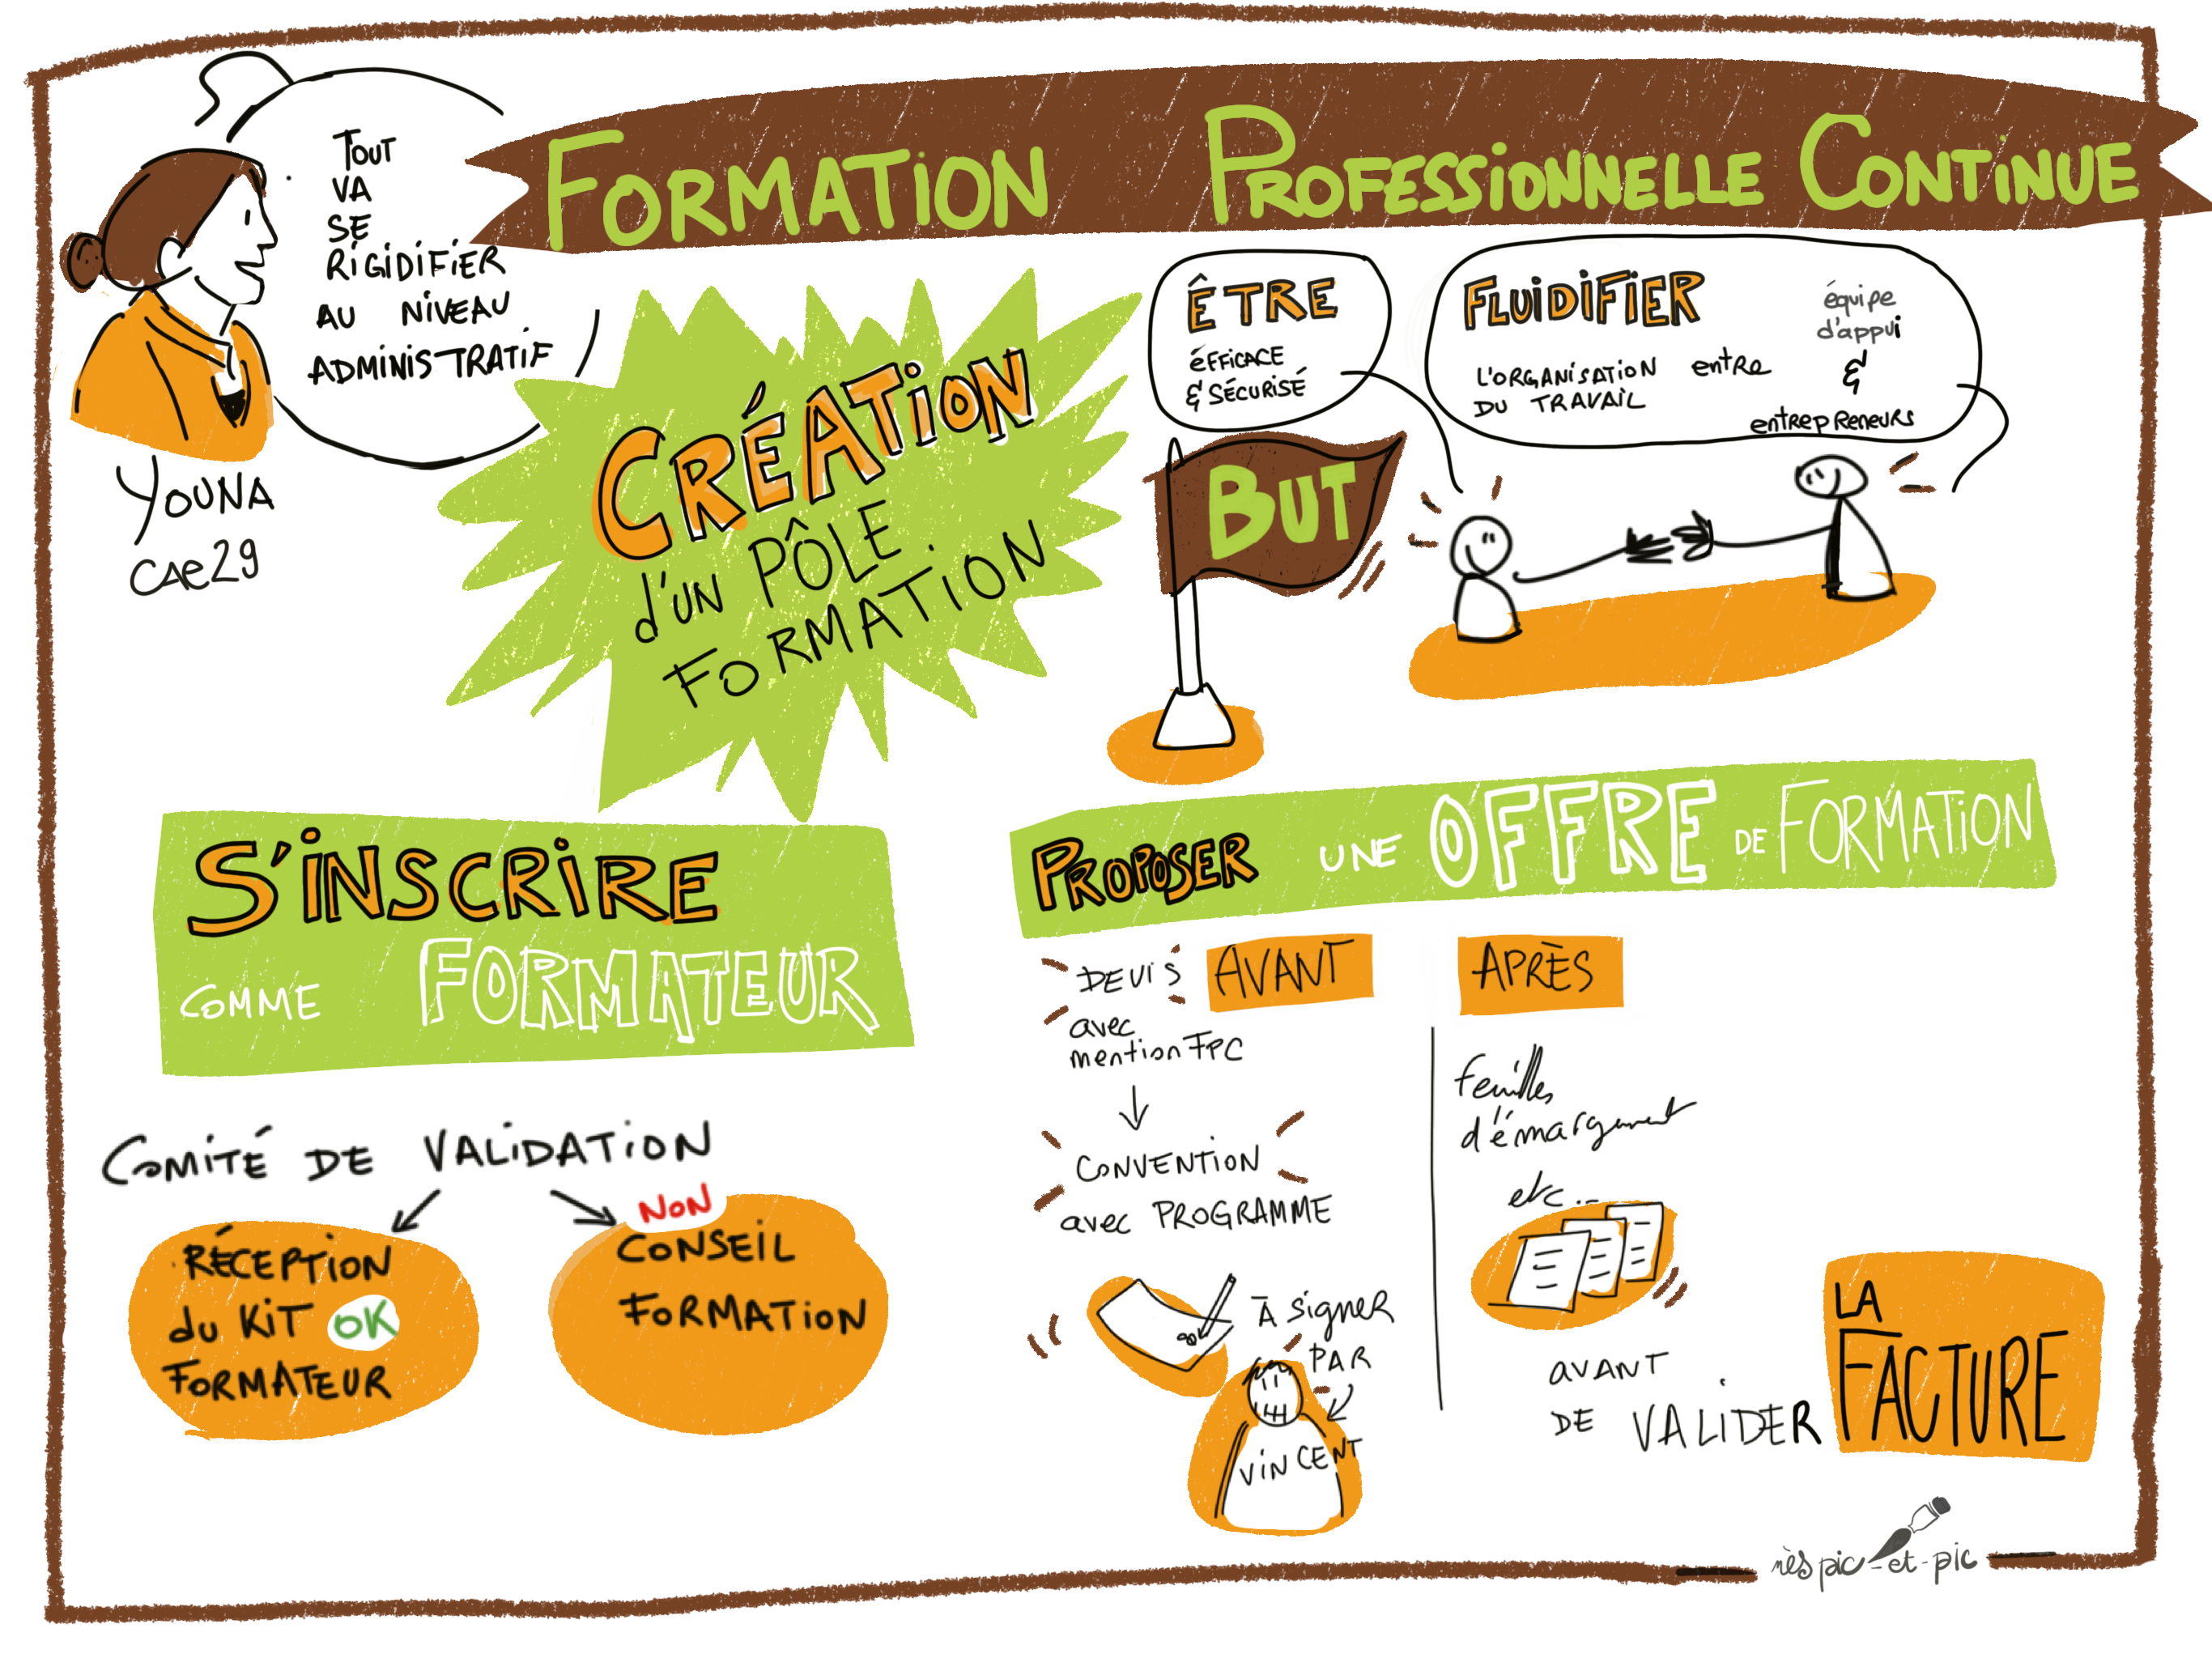 FORMATION PROFESSIONNELLE CONTINUE
TOUT
VA
SE
RIGIDIFIER
AU NIVEAU
ADMINISTRATIF
YOUNA
CAE29
CRÉATION
d'UN PÔLE
FORMATION
ÊTRE
éFFICACE
& SÉCURISÉ
FLUIDIFIER
L'ORGANISATION entre
DU TRAVAIL
équipe
d'appui
&
entrepreneurs
BUT
S'INSCRIRE
COMME FORMATEUR
COMITÉ DE VALIDATION
RÉCEPTION
du KIT OK
FORMATEUR
NON
CONSEIL
FORMATION
PROPOSER UNE OFFRE DE FORMATION
DEVIS AVANT
avec
mention FPC
CONVENTION
avec PROGRAMME
À signer
PAR
VINCENT
APRÈS
feuilles
d'émargement
etc...
AVANT
DE VALIDER
LA
FACTURE
nès pic-et-pic